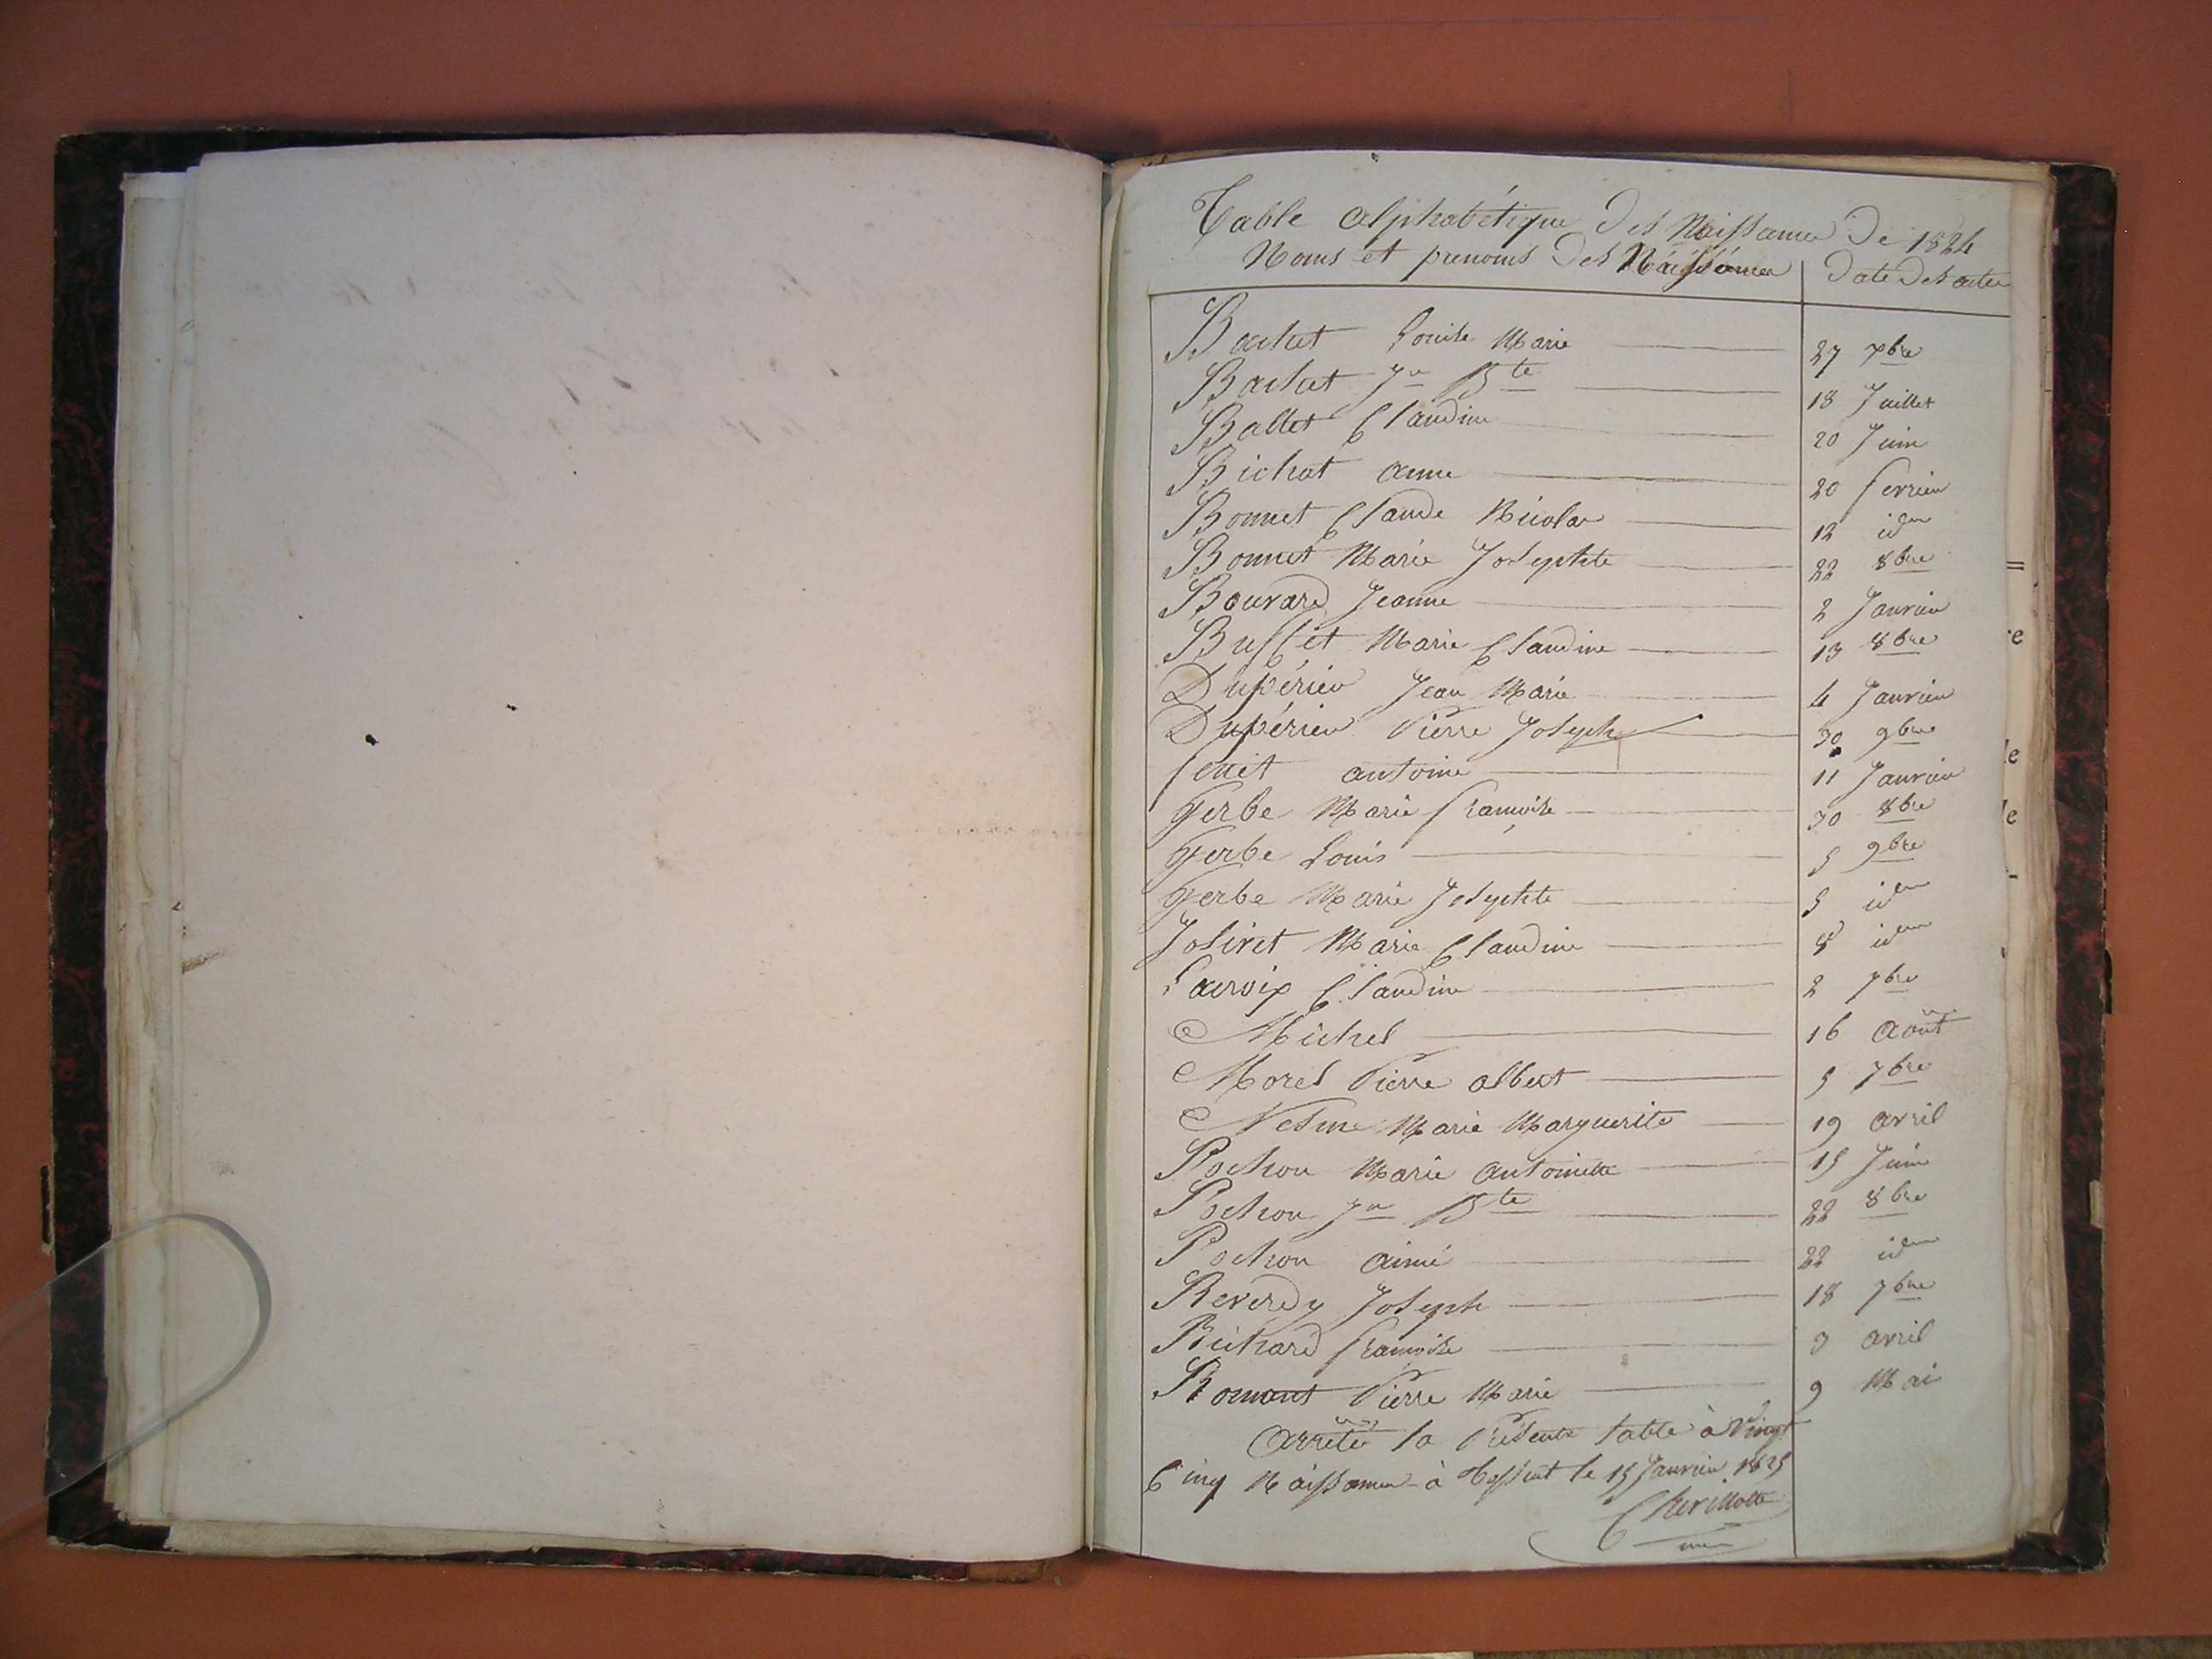 Table alphabétique des Naissances de 1824
Noms et prenoms des Naissances | Date des actes
Bachet Louise Marie 27 xbre
Bachet Jn Bte 18 Juillet
Ballet Claudine 20 Juin
Bichat anne 20 fevrier
Bonnet Claude Nicolas 12 idem
Bonnet Marie Josephte 22 8bre
Bouvard Jeanne 2 Janvier
Buffet Marie Claudine 13 8bre
Dupérier Jean Marie 4 Janvier
Dupérier Pierre Joseph 30 9bre
antoine 11 Janvier
Gerbe Marie françoise 30 8bre
Gerbe Louis 5 9bre
Gerbe Marie Josephte 5 idem
Joliret Marie Claudine 8 idem
Lacroix Claudine 2 7bre
Michel 16 août
Morel Pierre albert 5 7bre
Nesme Marie Marguerite 19 avril
Pochon Marie antoinette 15 Juin
Pochon Jn Bte 22 8bre
Pochon aimé 22 idem
Reverdy Joseph 18 7bre
Richard françoise 3 avril
Romant Pierre Marie 9 Mai
arretée la Présente table à vingt
Cinq Naissances à le 15 Janvier 1825
Chevillotte